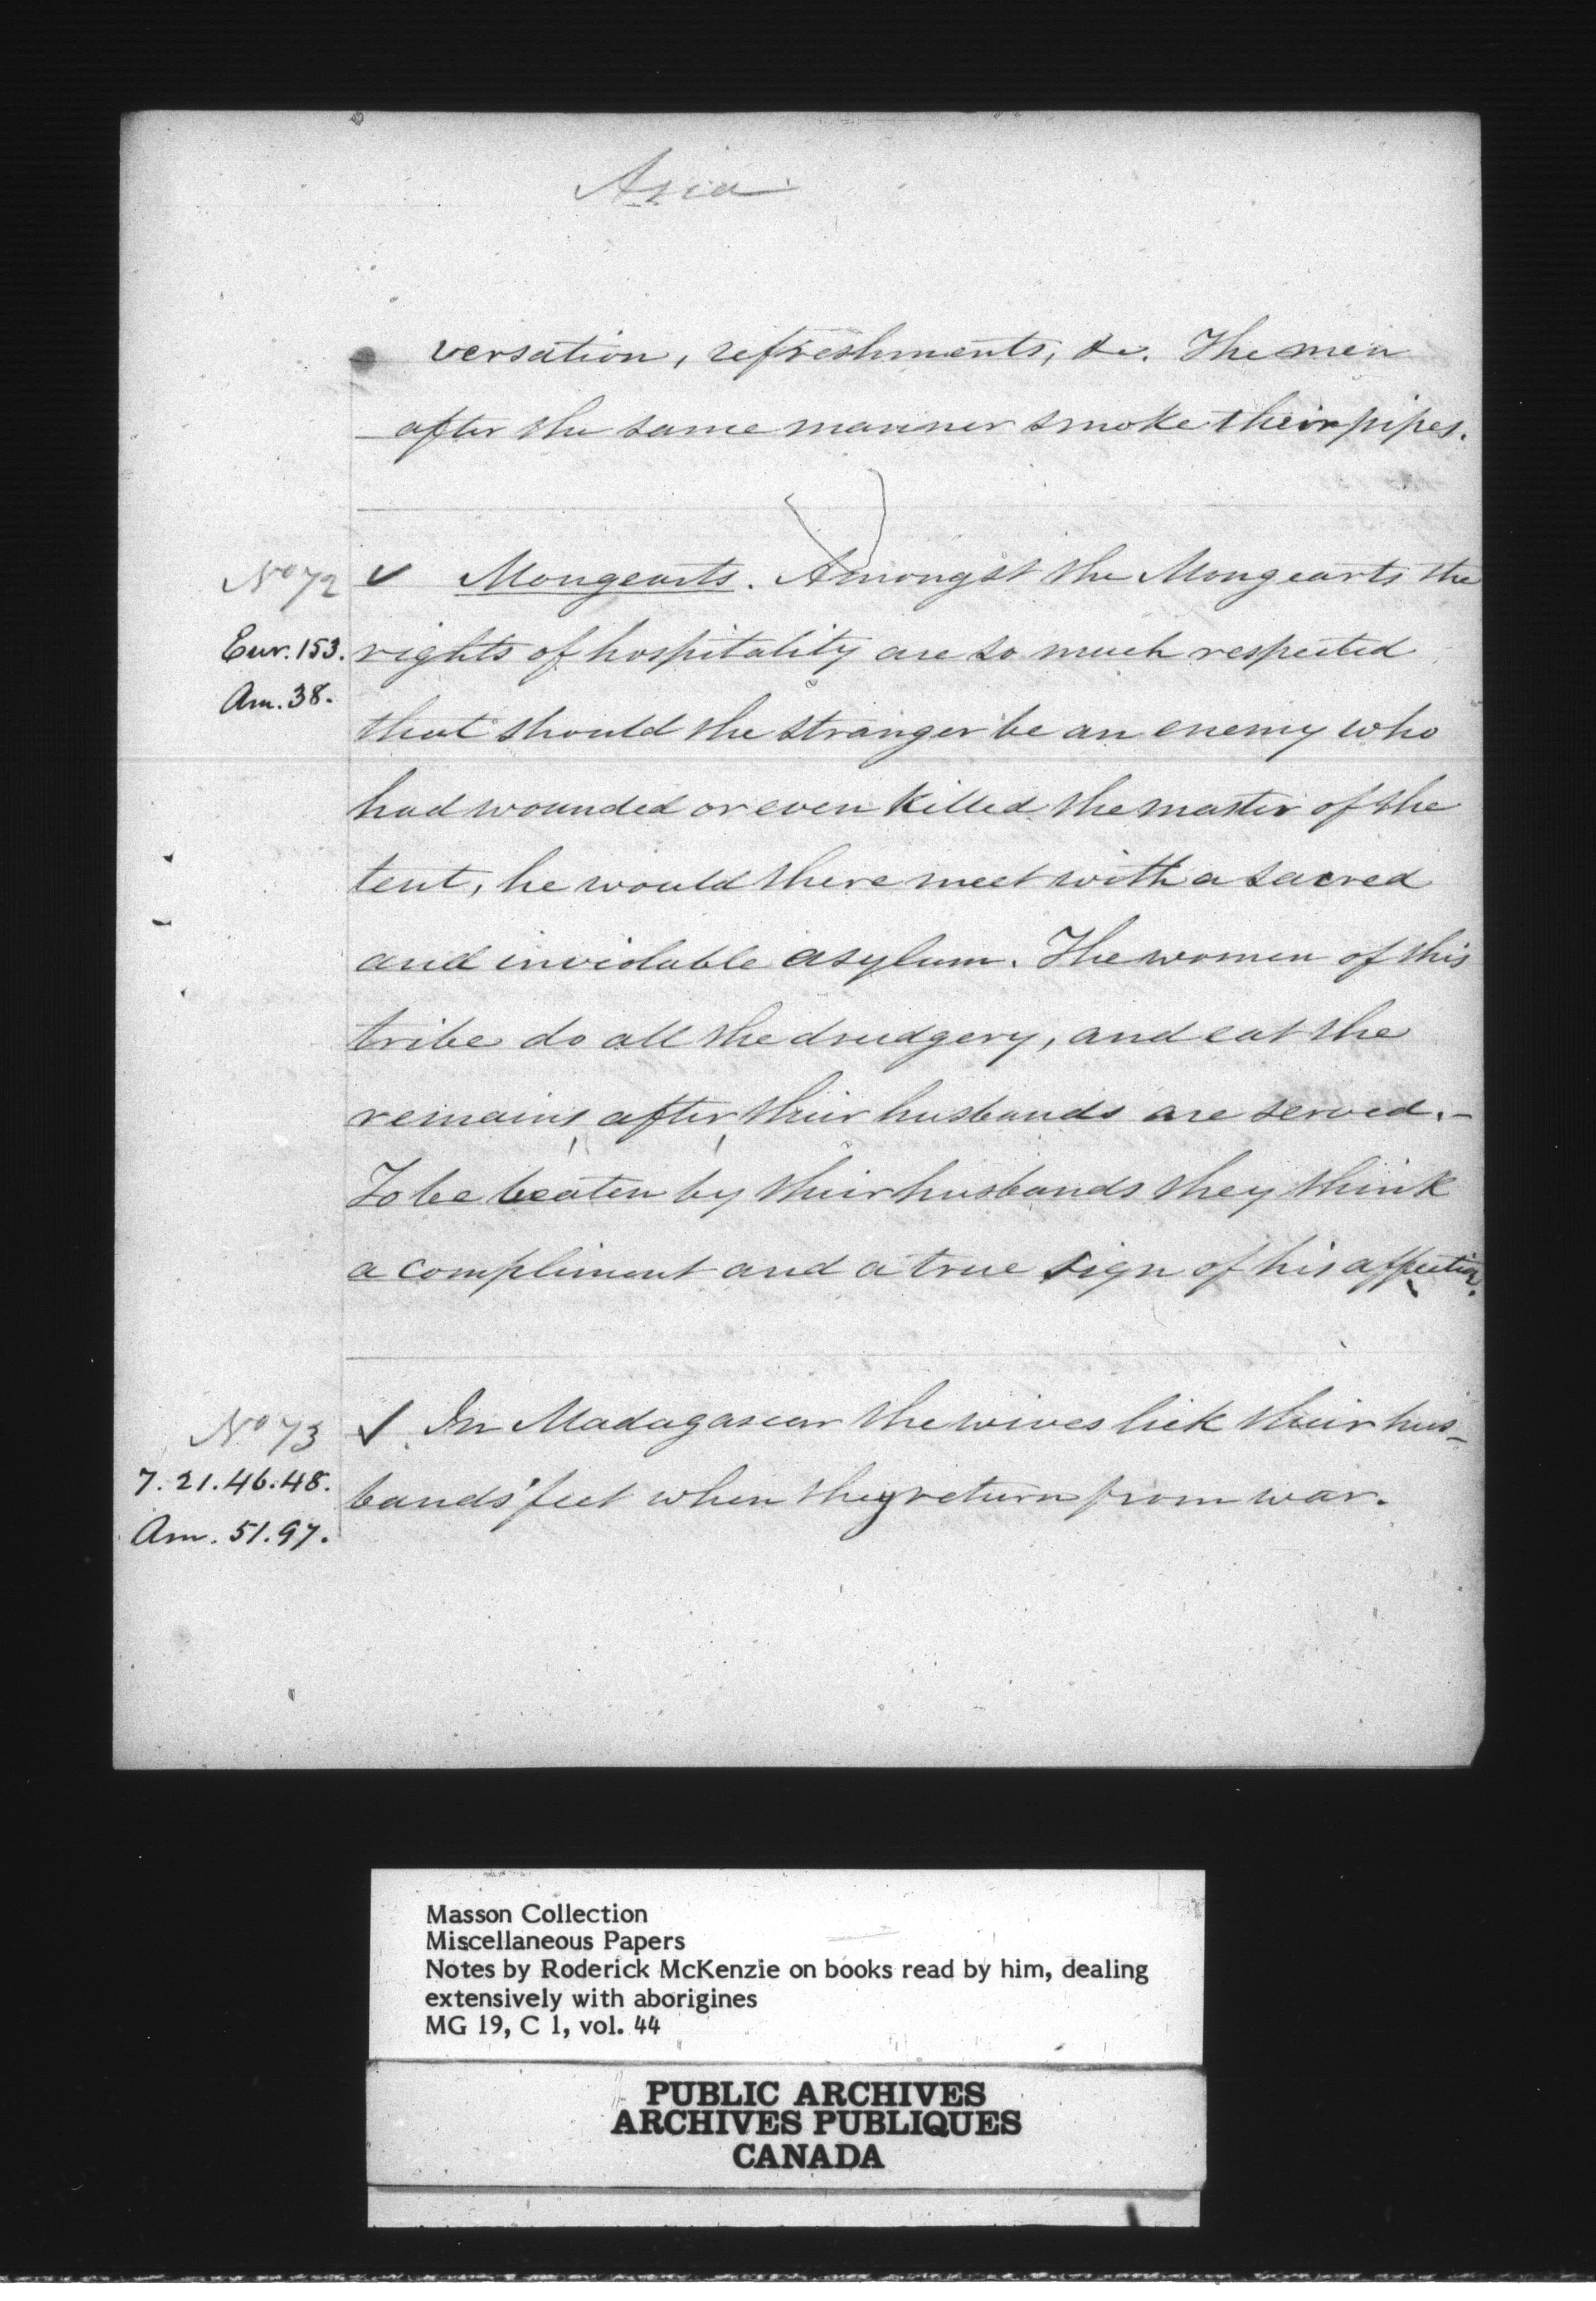 Asia
versation, refreshments, &c. The men
after the same manner smoke their pipes.
No 72 ✓ Mongearts. Amongst the Mongearts the
Eur. 153. rights of hospitality are so much respected
Am. 38.
that should the stranger be an enemy who
had wounded or even killed the master of the
tent, he would there meet with a sacred
and inviolable asylum. The women of this
tribe do all the drudgery, and eat the
remains, after, their husbands are served.-
To be beaten by their husbands they think
a compliment and a true sign of his affection.
No 73 ✓ In Madagascar the wives lick their hus-
7. 21. 46. 48. bands' feet when they return from war.
Am. 51. 97.
Masson Collection
Miscellaneous Papers
Notes by Roderick McKenzie on books read by him, dealing
extensively with aborigines
MG 19, C 1, vol. 44
PUBLIC ARCHIVES
ARCHIVES PUBLIQUES
CANADA